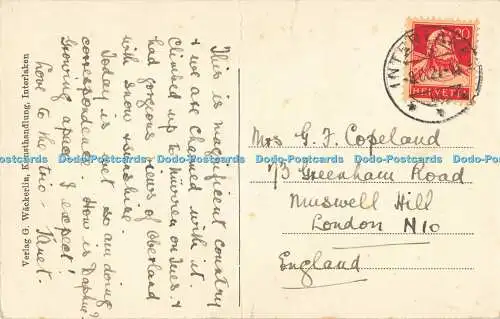 This is magnificent country
& we are charmed with it.
Climbed up to Murren on Tues. &
had gorgeous views of Oberland
with snow & sunshine.
Today is wet so am doing
correspondence. How is Daphne?
Growing apace I expect!
Love to the trio -
Verlag G. Wäckerlin, Kunsthandlung, Interlaken
20
HELVETIA
INTERLAKEN
Mrs G. F. Copeland
73 Greenham Road
Muswell Hill
London N10
England
Dodo-Postcards Dodo-Postcards Dodo-Postcards Dodo-Postcards